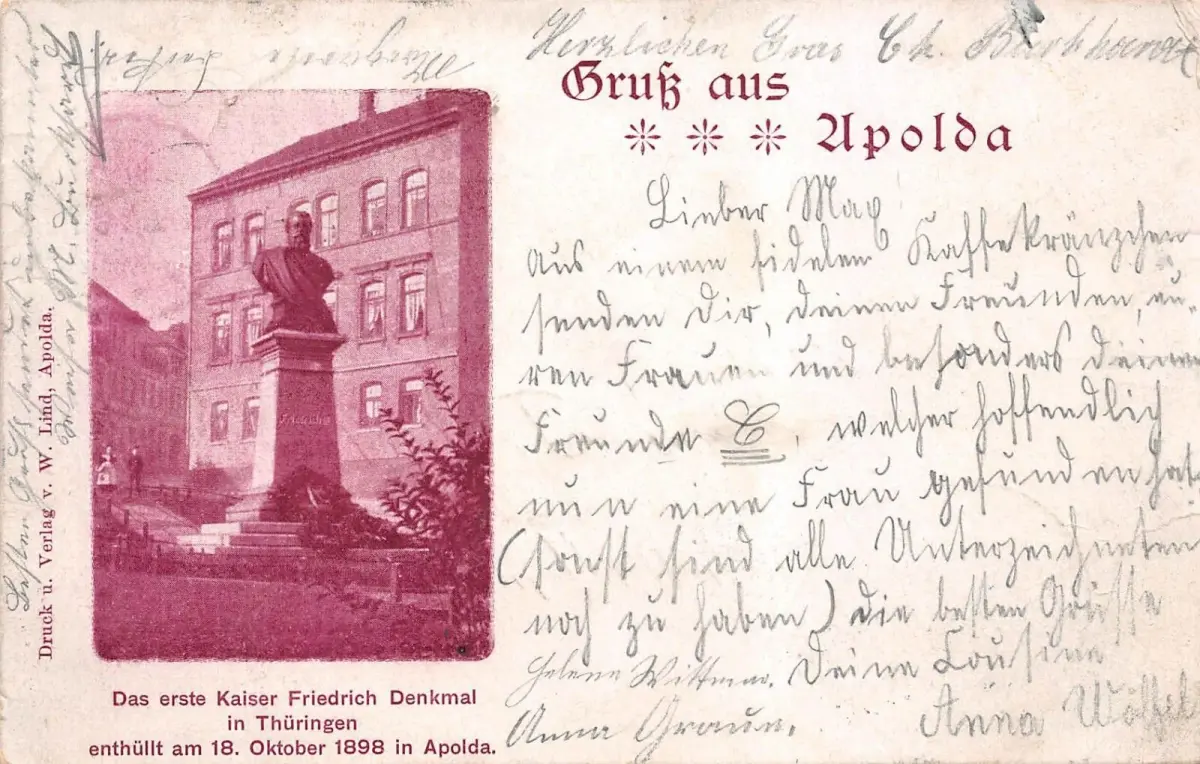 Herzlichen Grus Ch. Burkhardt
Gruß aus
Apolda
Lieber Max
Aus einem fidelen Kaffekränzchen
senden dir, deinen Freunden, eu-
ren Frauen und besonders deinem
Freunde C, welcher hoffendlich
nun eine Frau gefunden hat
(sonst sind alle Unterzeichneten
noch zu haben) die besten Grüsse
Deine Cousine
Helene Wittmar.
Anna Graun.
Anna
Friedrich
Das erste Kaiser Friedrich Denkmal
in Thüringen
enthüllt am 18. Oktober 1898 in Apolda.
Druck u. Verlag v. W. Lind, Apolda.
Margarethe